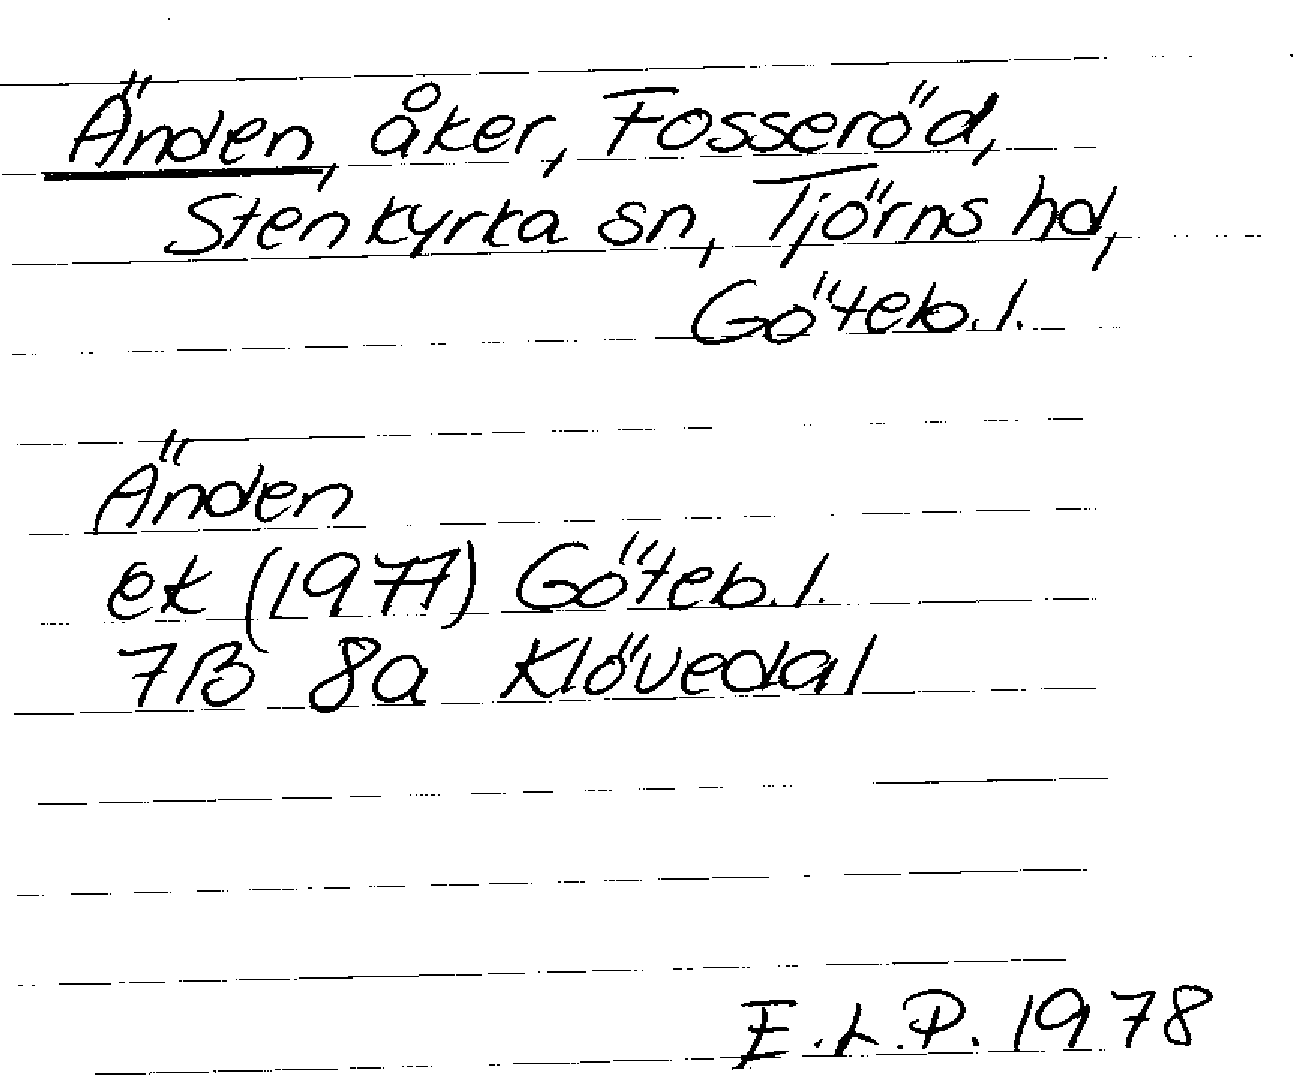 Änden, åker, Fosseröd,
Stenkyrka sn, Tjörns hd,
Göteb. l.
Änden
ek (1977) Göteb. l.
7B 8a Klövedal
E.L.P. 1978